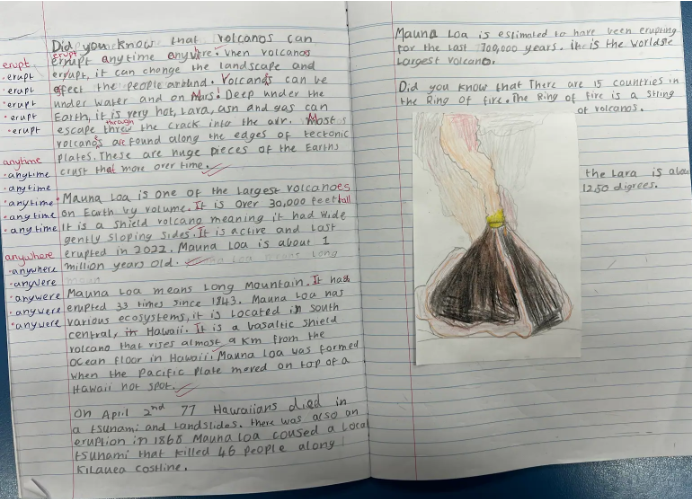 Did you know that volcanos can
erupt
erupt anytime anywere. when volcanos
errupt, it can change the landscape and
effect the people around. Volcanos can be
under water and on Mars! Deep under the
Earth, it is very hot, Lava, asn and gas can
through
escape threw the crack into the air. Most
volcanos are found along the edges of tectonic
plates. These are huge pieces of the Earths
crust that move over time.
erupt
·erupt
·erupt
·erupt
·erupt
·erupt
anytime
·anytime
·anytime
·anytime
·anytime
·anytime
anywhere
·anywhere
·anyvere
·anywere
·anywere
·anywere
Mauna Loa is one of the Largest volcanoes
on Earth by volume. It is over 30,000 feet tall
It is a shield volcano meaning it had wide
gently sloping sides. It is active and Last
erupted in 2022. Mauna Loa is about 1
million years old.
Mauna Loa means Long Mountain. It had
erupted 33 times since 1843. Mauna Loa has
various ecosystems, it is located in south
central, in Hawaii. It is a basaltic shield
volcano that rises almost 9 km from the
ocean floor in Hawaii. Mauna Loa was formed
when the Pacific Plate moved on top of a
Hawaii hot spot.
On April 2nd 77 Hawaiians died in
a tsunami and Landslides. there was also an
eruption in 1868 Mauna Loa coused a Local
tsunami that killed 46 people along
Kilauea costline.
Mauna Loa is estimated to have been erupting
for the Last 700,000 years. it is the worlds
Largest volcano.
Did you know that There are 15 countries in
the Ring of fire. The Ring of fire is a string
of volcanos.
the Lava is
1250 digrees.